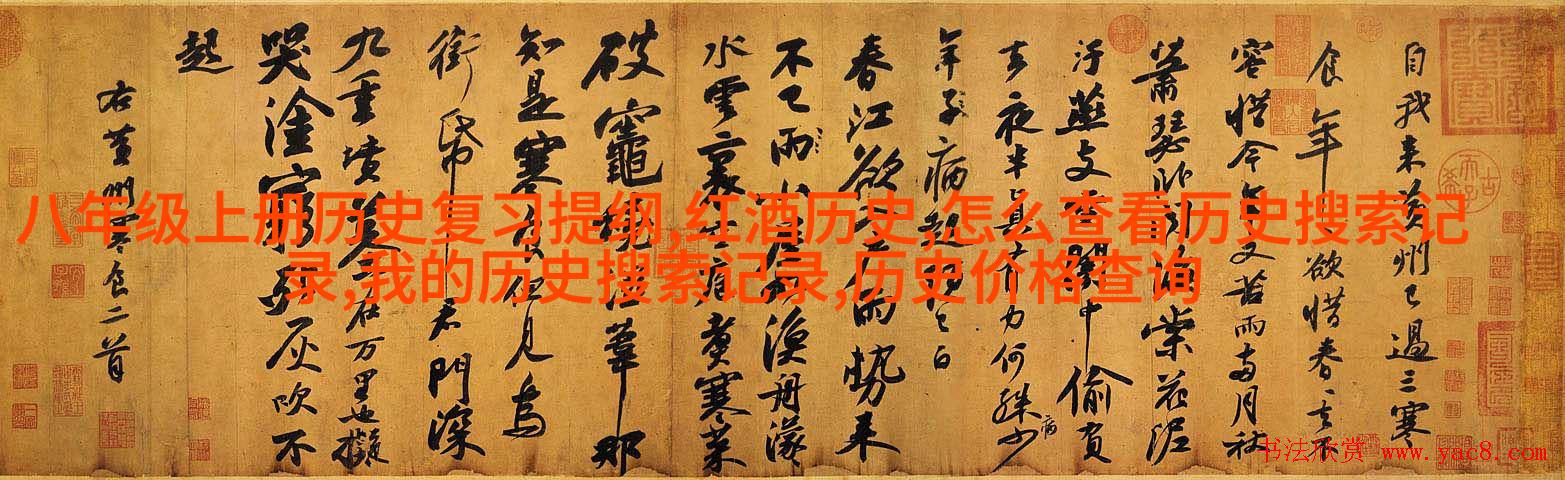 八年级上册历史复习提纲,红酒历史,怎么查看历史搜索记
录,我的历史搜索记录,历史价格查询
自我来黃州已過三寒
食年年欲惜春春去不
容惜今年又苦雨兩月秋
蕭瑟臥聞海棠花泥
汙燕支雪闇中偷負
去夜半真有力何殊少
病
年子病起頭已白
春江欲入戶雨勢來
不已雨小屋如漁舟濛
水雲裏空庖煮寒菜
破竈燒濕葦那
知是寒食但見烏
銜帋君門深
九重墳墓在万里也擬
哭塗窮死灰吹不
起
右黃州寒食二首
书法欣赏 www.yac8.com